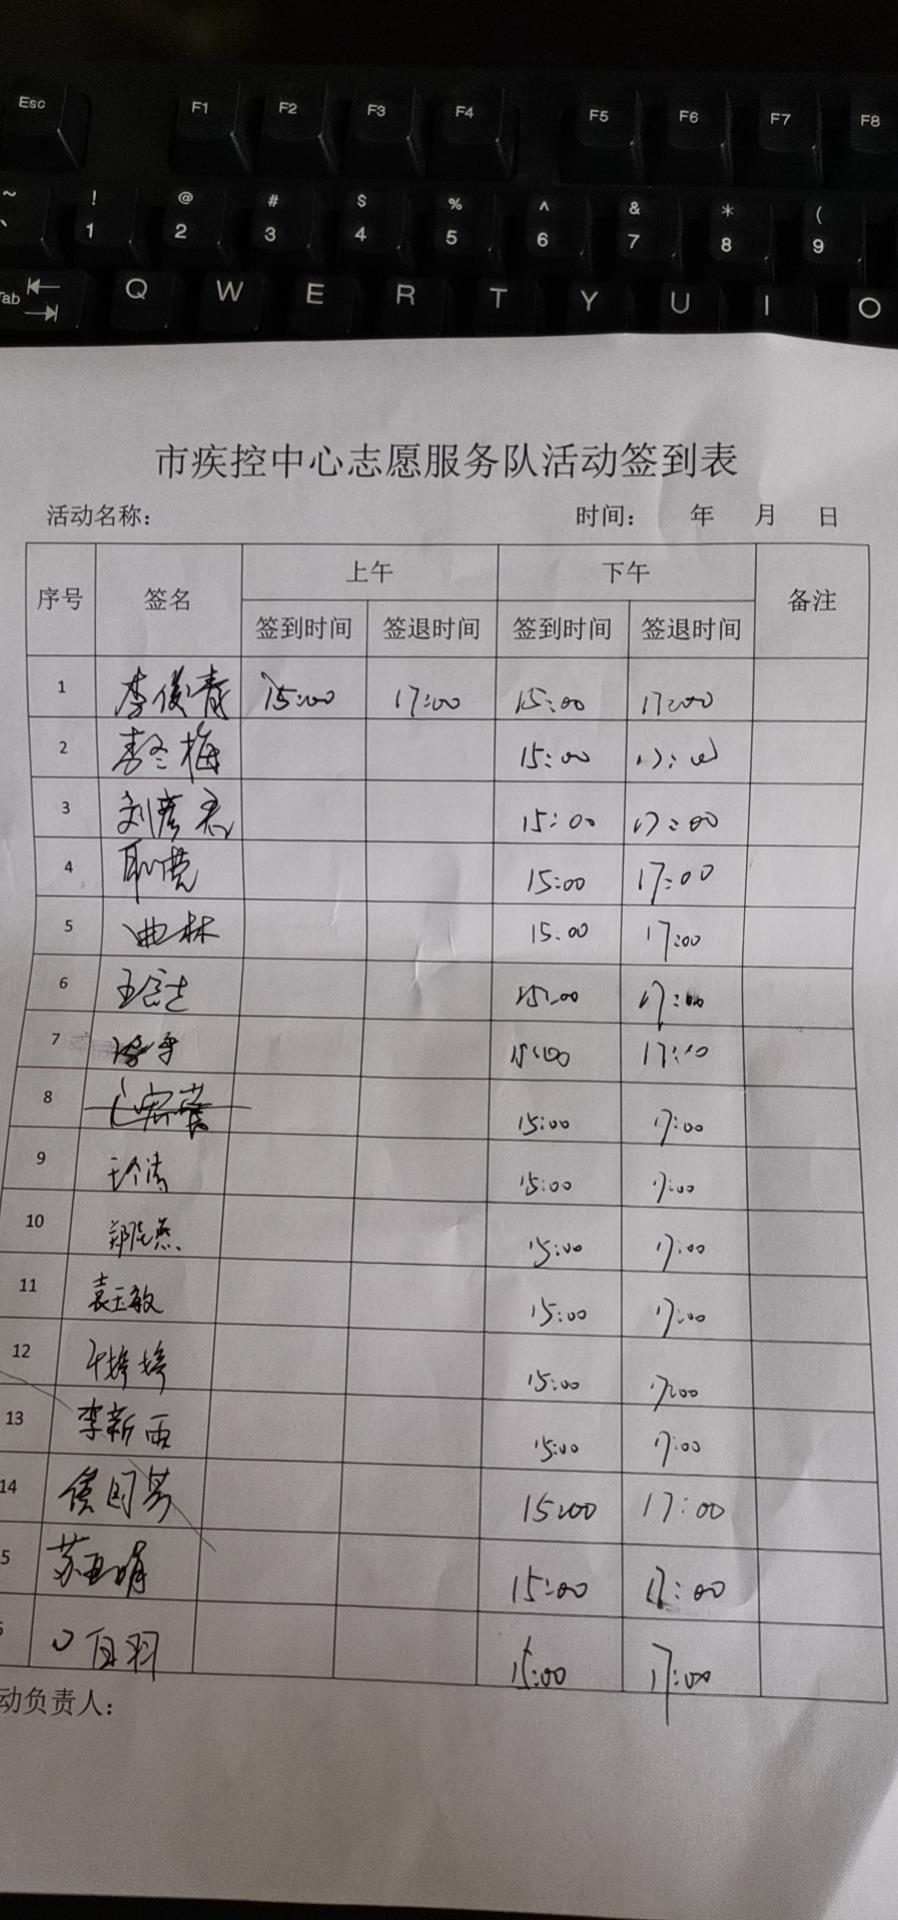 Esc F1 F2 F3 F4 F5 F6 F7 F8
~ ! @ # $ % ^ & * (
、 1 2 3 4 5 6 7 8 9
Tab Q W E R T Y U I O
市疾控中心志愿服务队活动签到表
活动名称: 时间: 年 月 日
序号 签名 上午 下午 备注
签到时间 签退时间 签到时间 签退时间
1 李俊青 15:00 17:00 15:00 17:00
2 李冬梅 15:00 17:00
3 刘彦君 15:00 17:00
4 15:00 17:00
5 曲林 15:00 17:00
6 15:00 17:00
7 15:00 17:10
8 15:00 17:00
9 15:00 17:00
10 15:00 17:00
11 袁玉敏 15:00 17:00
12 婷婷 15:00 17:00
13 李新雨 15:00 17:00
14 侯国芳 15:00 17:00
5 苏亚娟 15:00 17:00
白羽 15:00 17:00
动负责人: